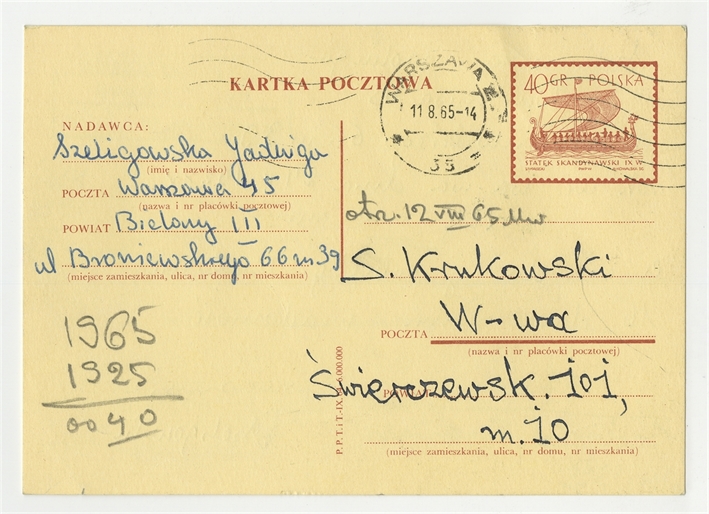 KARTKA POCZTOWA
WARSZAWA
11.8.65-14
33
40 GR POLSKA
STATEK SKANDYNAWSKI IX W.
NADAWCA:
Szeligowska Jadwiga
(imię i nazwisko)
POCZTA Warszawa 45
(nazwa i nr placówki pocztowej)
POWIAT Bielany III
ul Broniewskiego 66 m 39
(miejsce zamieszkania, ulica, nr domu, nr mieszkania)
otrz. 12 VIII 65
S. Krukowski
POCZTA W-wa
(nazwa i nr placówki pocztowej)
Świerczewsk. 101,
m. 10
(miejsce zamieszkania, ulica, nr domu, nr mieszkania)
1965
1925
0040
P. P. T. i T.-IX
000.000